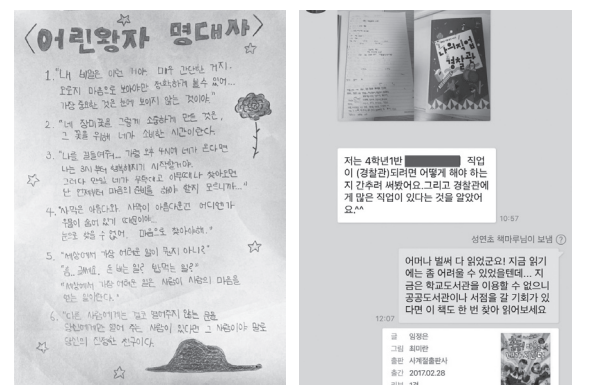 <어린왕자 명대사>
1. "내 비밀은 이런 거야. 매우 간단한 거지.
오로지 마음으로 보아야만 정확하게 볼 수 있어...
가장 중요한 것은 눈에 보이지 않는 것이야."
2. "네 장미꽃을 그렇게 소중하게 만든 것은,
그 꽃을 위해 네가 소비한 시간이란다.
3. "나를 길들여줘... 가령 오후 4시에 네가 온다면
나는 3시부터 행복해지기 시작할거야.
그러다 만일, 네가 무턱대고 아무때나 찾아오면
난 언제부터 마음의 준비를 해야 할지 모르니까..."
4. "사막은 아름다워. 사막이 아름다운건 어디엔가
우물이 숨어 있기 때문이야...
눈으로 찾을 수 없어, 마음으로 찾아야해."
5. "세상에서 가장 어려운 일이 뭔지 아니?"
"음.. 글쎄요, 돈 버는 일? 밥먹는 일?"
"세상에서 가장 어려운 일은 사람이 사람의 마음을
얻는 일이란다."
6. "다른 사람에게는 결코 열어주지 않는 문을
당신에게만 열어 주는 사람이 있다면 그 사람이야 말로
당신의 진정한 친구이다.
나의 직업
경찰관
저는 4학년1반 직업
이 (경찰관)되려면 어떻게 해야 하는
지 간추려 써봤어요.그리고 경찰관에
게 많은 직업이 있다는 것을 알았어
요.^^
10:57
성연초 책마루님이 보냄 ?
어머나 벌써 다 읽었군요! 지금 읽기
에는 좀 어려울 수 있었을텐데... 지
금은 학교도서관을 이용할 수 없으니
공공도서관이나 서점을 갈 기회가 있
다면 이 책도 한 번 찾아 읽어보세요
12:07
글 임정은
그림 최미란
출판 사계절출판사
출간 2017.02.28